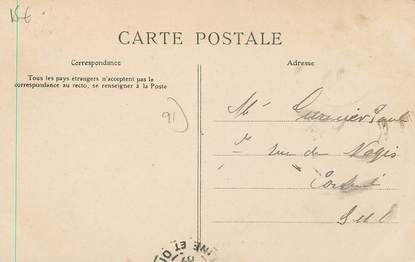 CARTE POSTALE
Correspondance
Tous les pays étrangers n'acceptent pas la
correspondance au recto, se renseigner à la Poste
91)
Adresse
Mr Paul
rue du
S et O
NE ET OI